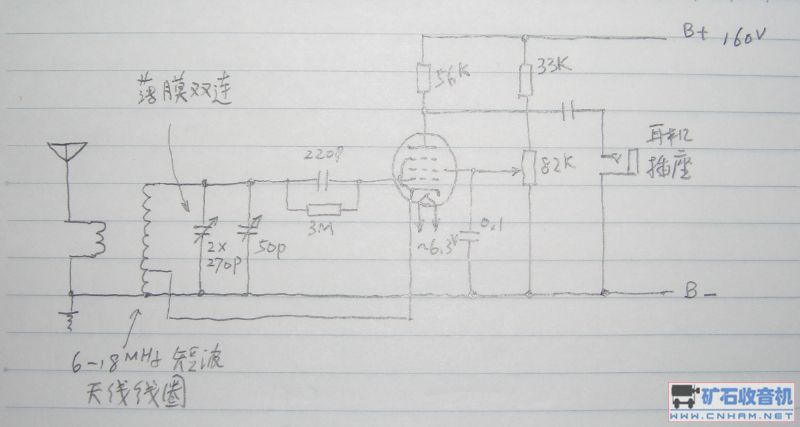 B+ 160V
56K
33K
薄膜双连
220P
耳机
插座
82K
3M
2×
270P
50p
~6.3V
0.1
B-
6-18MHz 短波
天线线圈
矿石收音机
WWW.CNHAM.NET